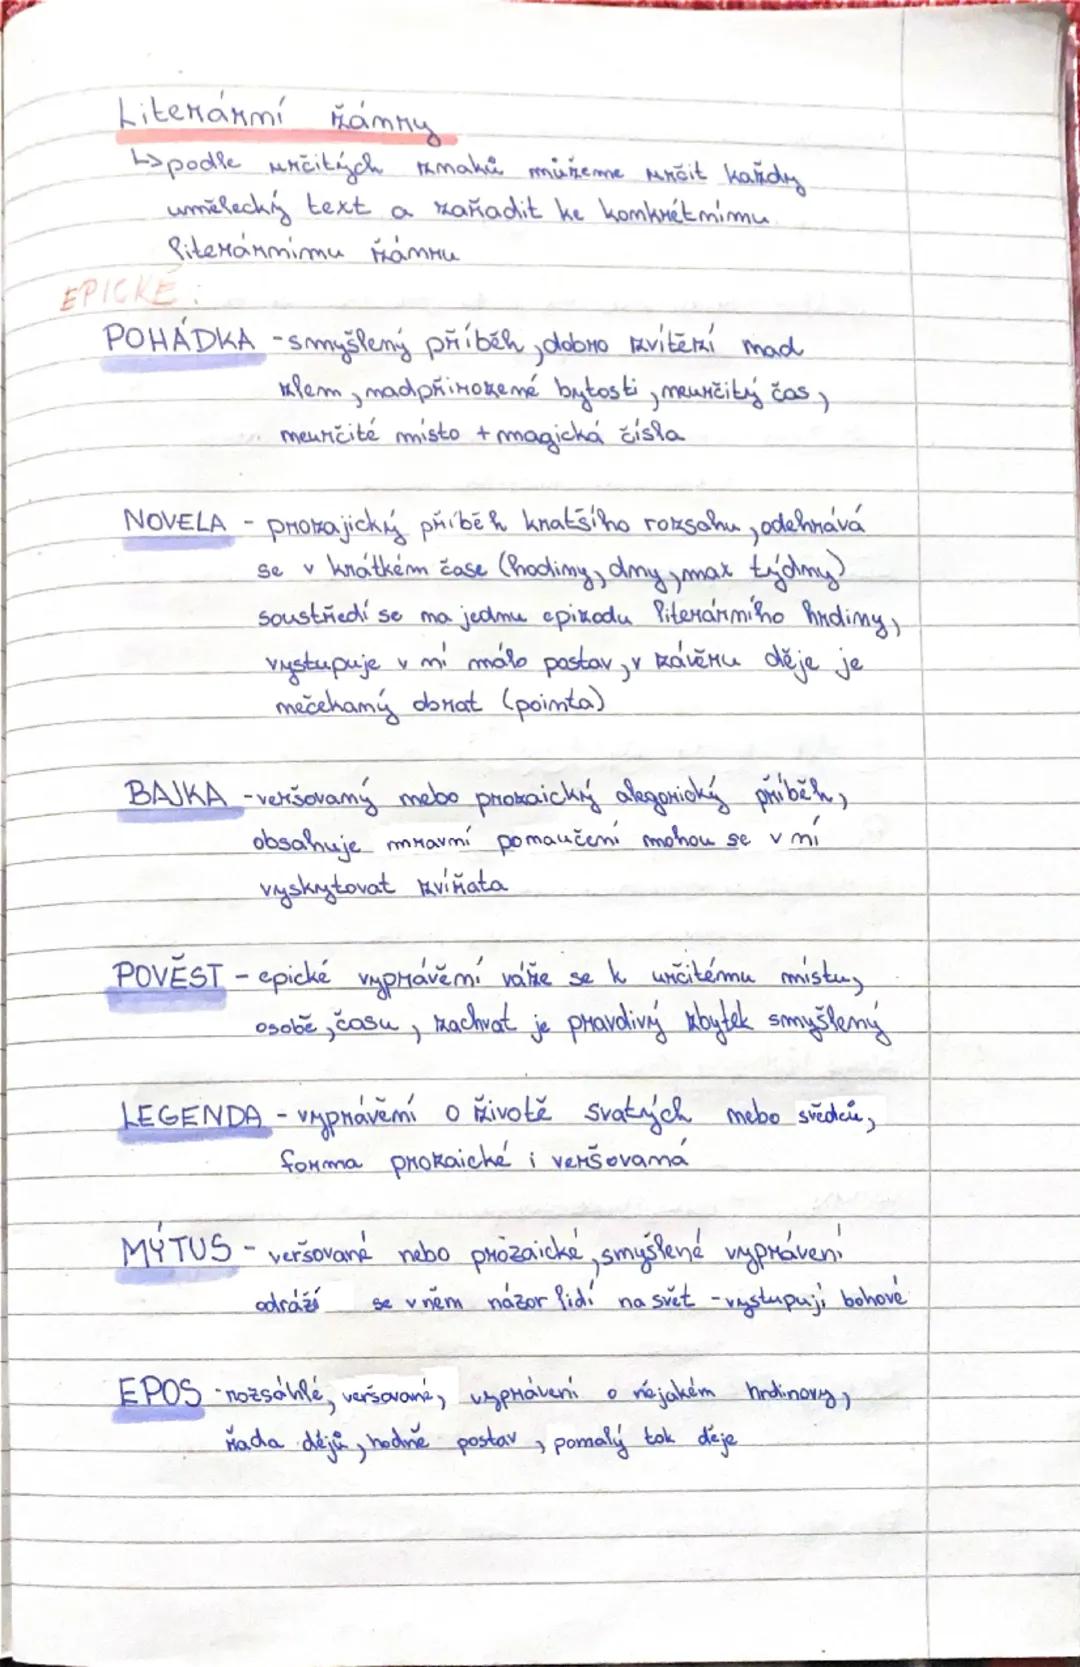 Literární žánry
↳ podle určitých znaků můžeme určit každý
umělecký text a zařadit ke konkrétnímu
literárnímu žánru
EPICKÉ:
POHÁDKA - smyšlený příběh, dobro zvítězí nad
zlem, nadpřirozené bytosti, neurčitý čas,
neurčité místo + magická čísla
NOVELA - prozajický příběh kratšího rozsahu, odehrává
se v krátkém čase (hodiny, dny, max týdny)
soustředí se na jednu epizodu literárního hrdiny,
vystupuje v ní málo postav, v závěru děje je
nečekaný obrat (pointa)
BAJKA - veršovaný nebo prozaický alegorický příběh,
obsahuje mravní ponaučení mohou se v ní
vyskytovat zvířata
POVĚST - epické vyprávění váže se k určitému místu,
osobě, času, zachvat je pravdivý zbytek smyšlený
LEGENDA - vyprávění o životě svatých nebo svědců,
forma prozaické i veršovaná
MÝTUS - veršované nebo prózaické, smyšlené vyprávení
odráží se v něm názor lidí na svět - vystupují bohové
EPOS - rozsáhlé, veršované, vyprávení o nějakém hrdinovy,
řada dějů, hodně postav, pomalý tok děje